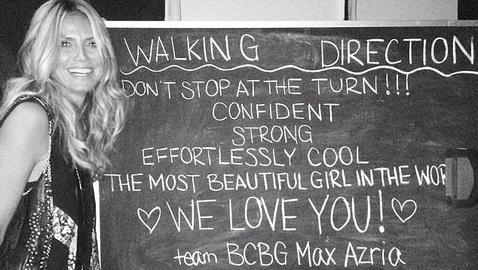 WALKING DIRECTION
DON'T STOP AT THE TURN!!!
CONFIDENT
STRONG
EFFORTLESSLY COOL
THE MOST BEAUTIFUL GIRL IN THE WOR
♡ WE LOVE YOU! ♡
team BCBG Max Azria